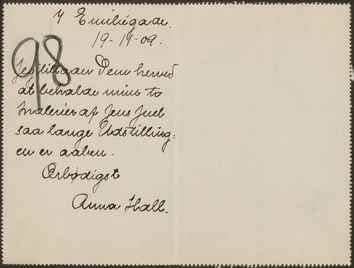 7 Emiliegade.
19-19-09.
98
Jeg tillader Dem herved
at beholde mine to
Malerier af Jens Juel
saa længe Udstilling:
en er aaben.
Ærbødigst
Anna Hall.